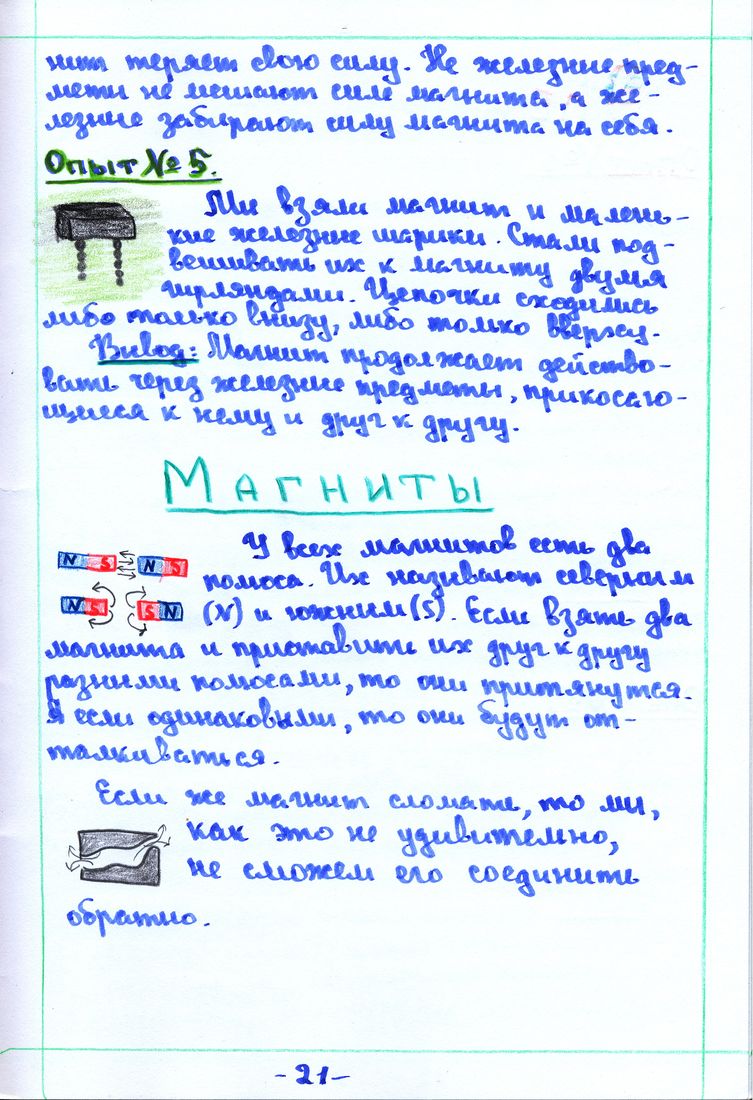 нит теряет свою силу. Не железные пред-
меты не мешают силе магнита, а же-
лезные забирают силу магнита на себя.
Опыт № 5.
Мы взяли магнит и малень-
кие железные шарики. Стали под-
вешивать их к магниту двумя
гирляндами. Цепочки сходились
либо только внизу, либо только вверху.
Вывод: Магнит продолжает действо-
вать через железные предметы, прикосаю-
щиеся к нему и друг к другу.
Магниты
N S N S
У всех магнитов есть два
полюса. Их называют северным
N S S N
(N) и южным (S). Если взять два
магнита и приставить их друг к другу
разными полюсами, то они притянутся.
А если одинаковыми, то они будут от-
талкиваться.
Если же магнит сломать, то мы,
как это не удивительно,
не сможем его соединить
обратно.
-21-